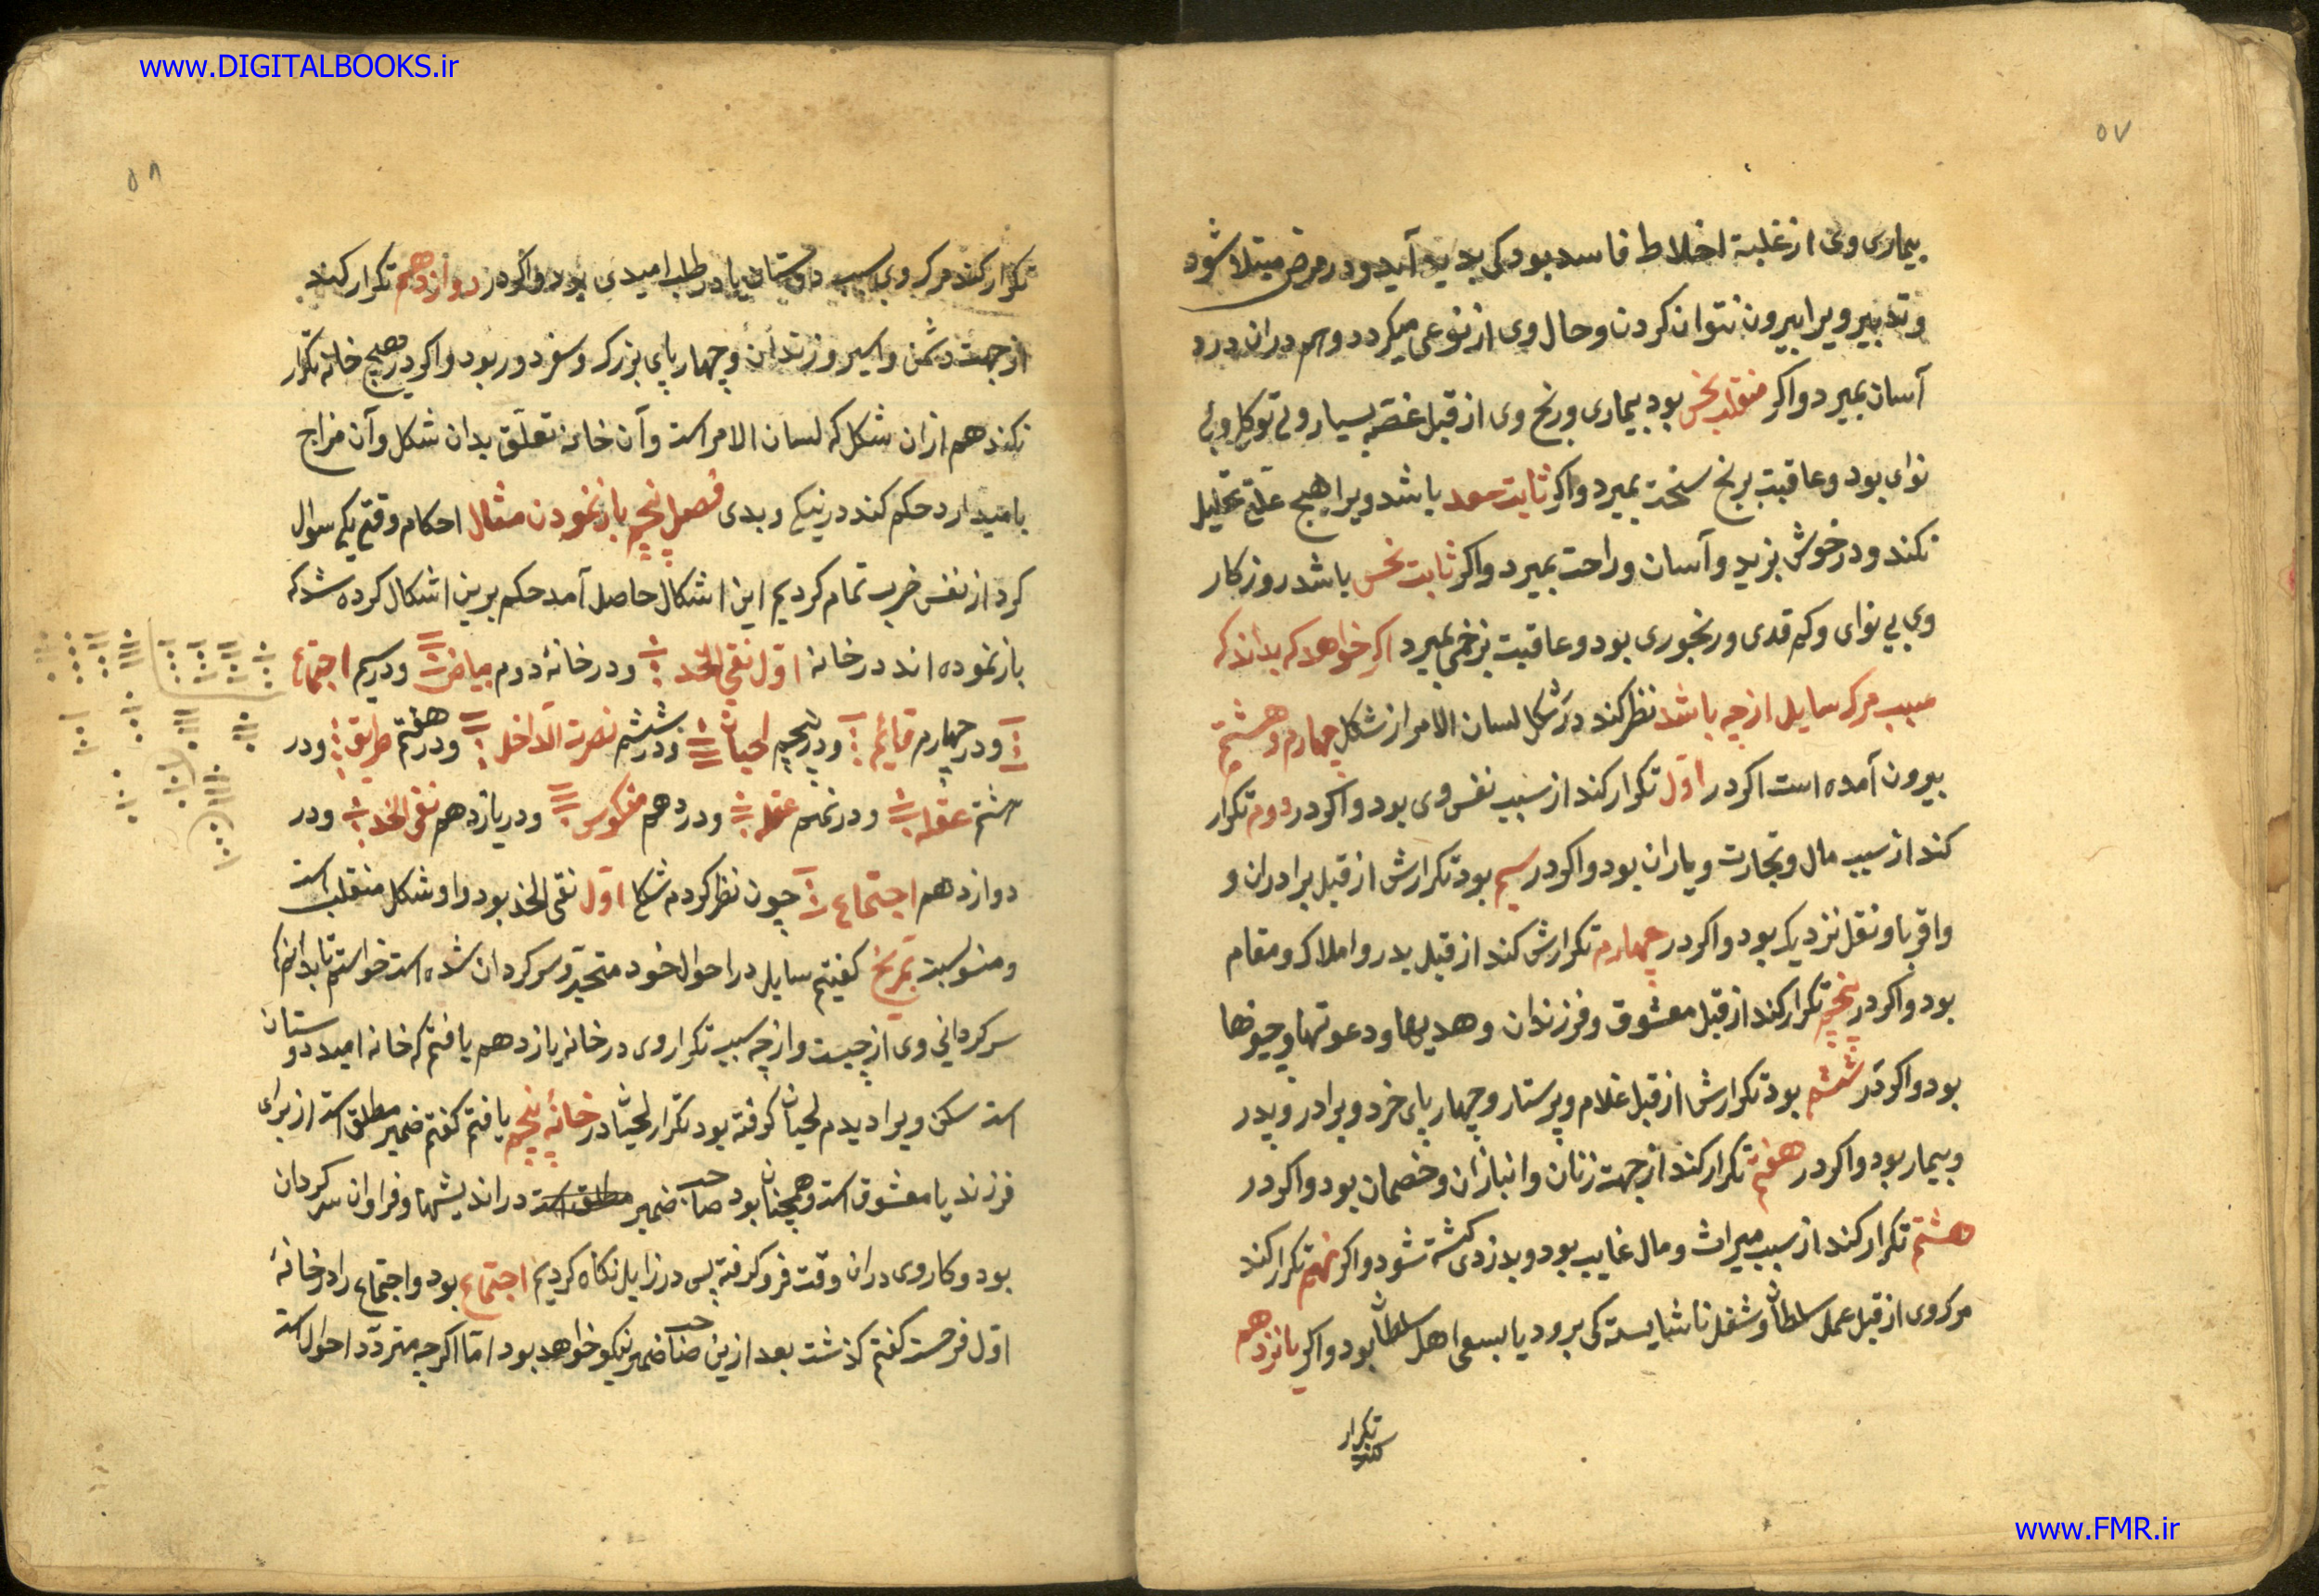 www.DIGITALBOOKS.ir
٥٧
بیماری وی از غلبهٔ اخلاط فاسد بود کی بدید آید و در مرض مبتلا شود
و تدبیر ویرا بیرون نتوان کردن و حال وی از نوعی میکردد و هم دران درد
آسان بمیرد و اکر منقلب نحس بود بیماری و رنج وی از قبل غصّه بسیار و بی توکل و بی
نوای بود و عاقبت برنج سخت بمیرد و اکر ثابت سعد باشد ویرا هیچ علتی تحلیل
نکند و در خوش بزید و آسان و راحت بمیرد و اکر ثابت نحس باشد روزکار
وی بی نوای و کم قدی و رنجوری بود و عاقبت بزخمی بمیرد اکر خواهد که بداند که
سبب مرک سایل از چه باشد نظر کند در شکل لسان الامر از شکل چهارم و هشتم
بیرون آمده است اکر در اوّل تکرار کند از سبب نفس وی بود و اکر در دوم تکرار
کند از سبب مال و تجارت و یاران بود و اکر در سیم بود تکرارش از قبل برادران و
و اقربا و نقل نزدیک بود و اکر در چهارم تکرارش کند از قبل بدر و املاک و مقام
بود و اکر در پنجم تکرار کند از قبل معشوق و فرزندان و هدیها و دعوتها و
بود و اکر در ششم بود تکرارش از قبل غلام و پرستار و چهارپای خرد و برادر و پدر
و بیمار بود و اکر در هفتم تکرار کند از جهت زنان و انبازان و خصمان بود و اکر در
هشتم تکرار کند از سبب میراث و مال غایب بود و بدزدی کشته شود و اکر نهم تکرار کند
مرک وی از قبل عمل سلطان و شغل ناشایسته کی برود یا بسعی اهل سلطان بود و اکر یانزدهم
تکرار کند
٥٨
تکرار کند مرک وی بسبب دوستان یا در طلب امیدی بود و اکر در دوازدهم تکرار کند
از جهت دشمن و اسیر و زندان و چهارپای بزرک و سفر دور بود و اکر در هیچ خانه تکرار
نکند هم ازان شکل که لسان الامر است و آن خانه تعلّق بدان شکل و آن مزاج
با میدارد حکم کند در نیکی و بدی فصل پنجم باز نمودن مثال احکام وقتی یکی سوال
کرد از نفس ضرب تمام کردیم این اشکال حاصل آمد حکم برین اشکال کرده شد که
باز نموده اند در خانه اوّل نقی الخد و در خانهٔ دوم بیاض و در سیم اجتماع
و در چهارم و در پنجم لحیان و در ششم نصرت الداخل و در هفتم طریق و در
هشتم عقله و در نهم عقله و در دهم منکوس و در یازدهم نقی الخد و در
دوازدهم اجتماع چون نظر کردم شکل اوّل نقی الخد بود و او شکل منقلب است
و منسوبست بمریخ کفتیم سایل در احوال خود متحیّر و سرکردان شده است خواستم تا بدانم
سرکردانی وی از چیست و از چه سبب تکرار وی در خانه یازدهم یافتم که خانه امید دوستان
است سکن ویرا دیدم لحیان کرفته بود تکرار لحیان در خانهٔ پنجم یافتم کفتم ضمیر مطلق است از برای
فرزند یا معشوق است و همچنان بود صاحب ضمیر مطلق است در اندیشها و فراوان سرکردان
بود و کار وی دران وقت فرو کرفته پس در زایل نکاه کردیم اجتماع بود و اجتماع را در خانهٔ
اوّل فرحست کفتم کذشت بعد ازین صاحب ضمیر نیکو خواهد بود امّا اکرچه متردّد احوال است
www.FMR.ir